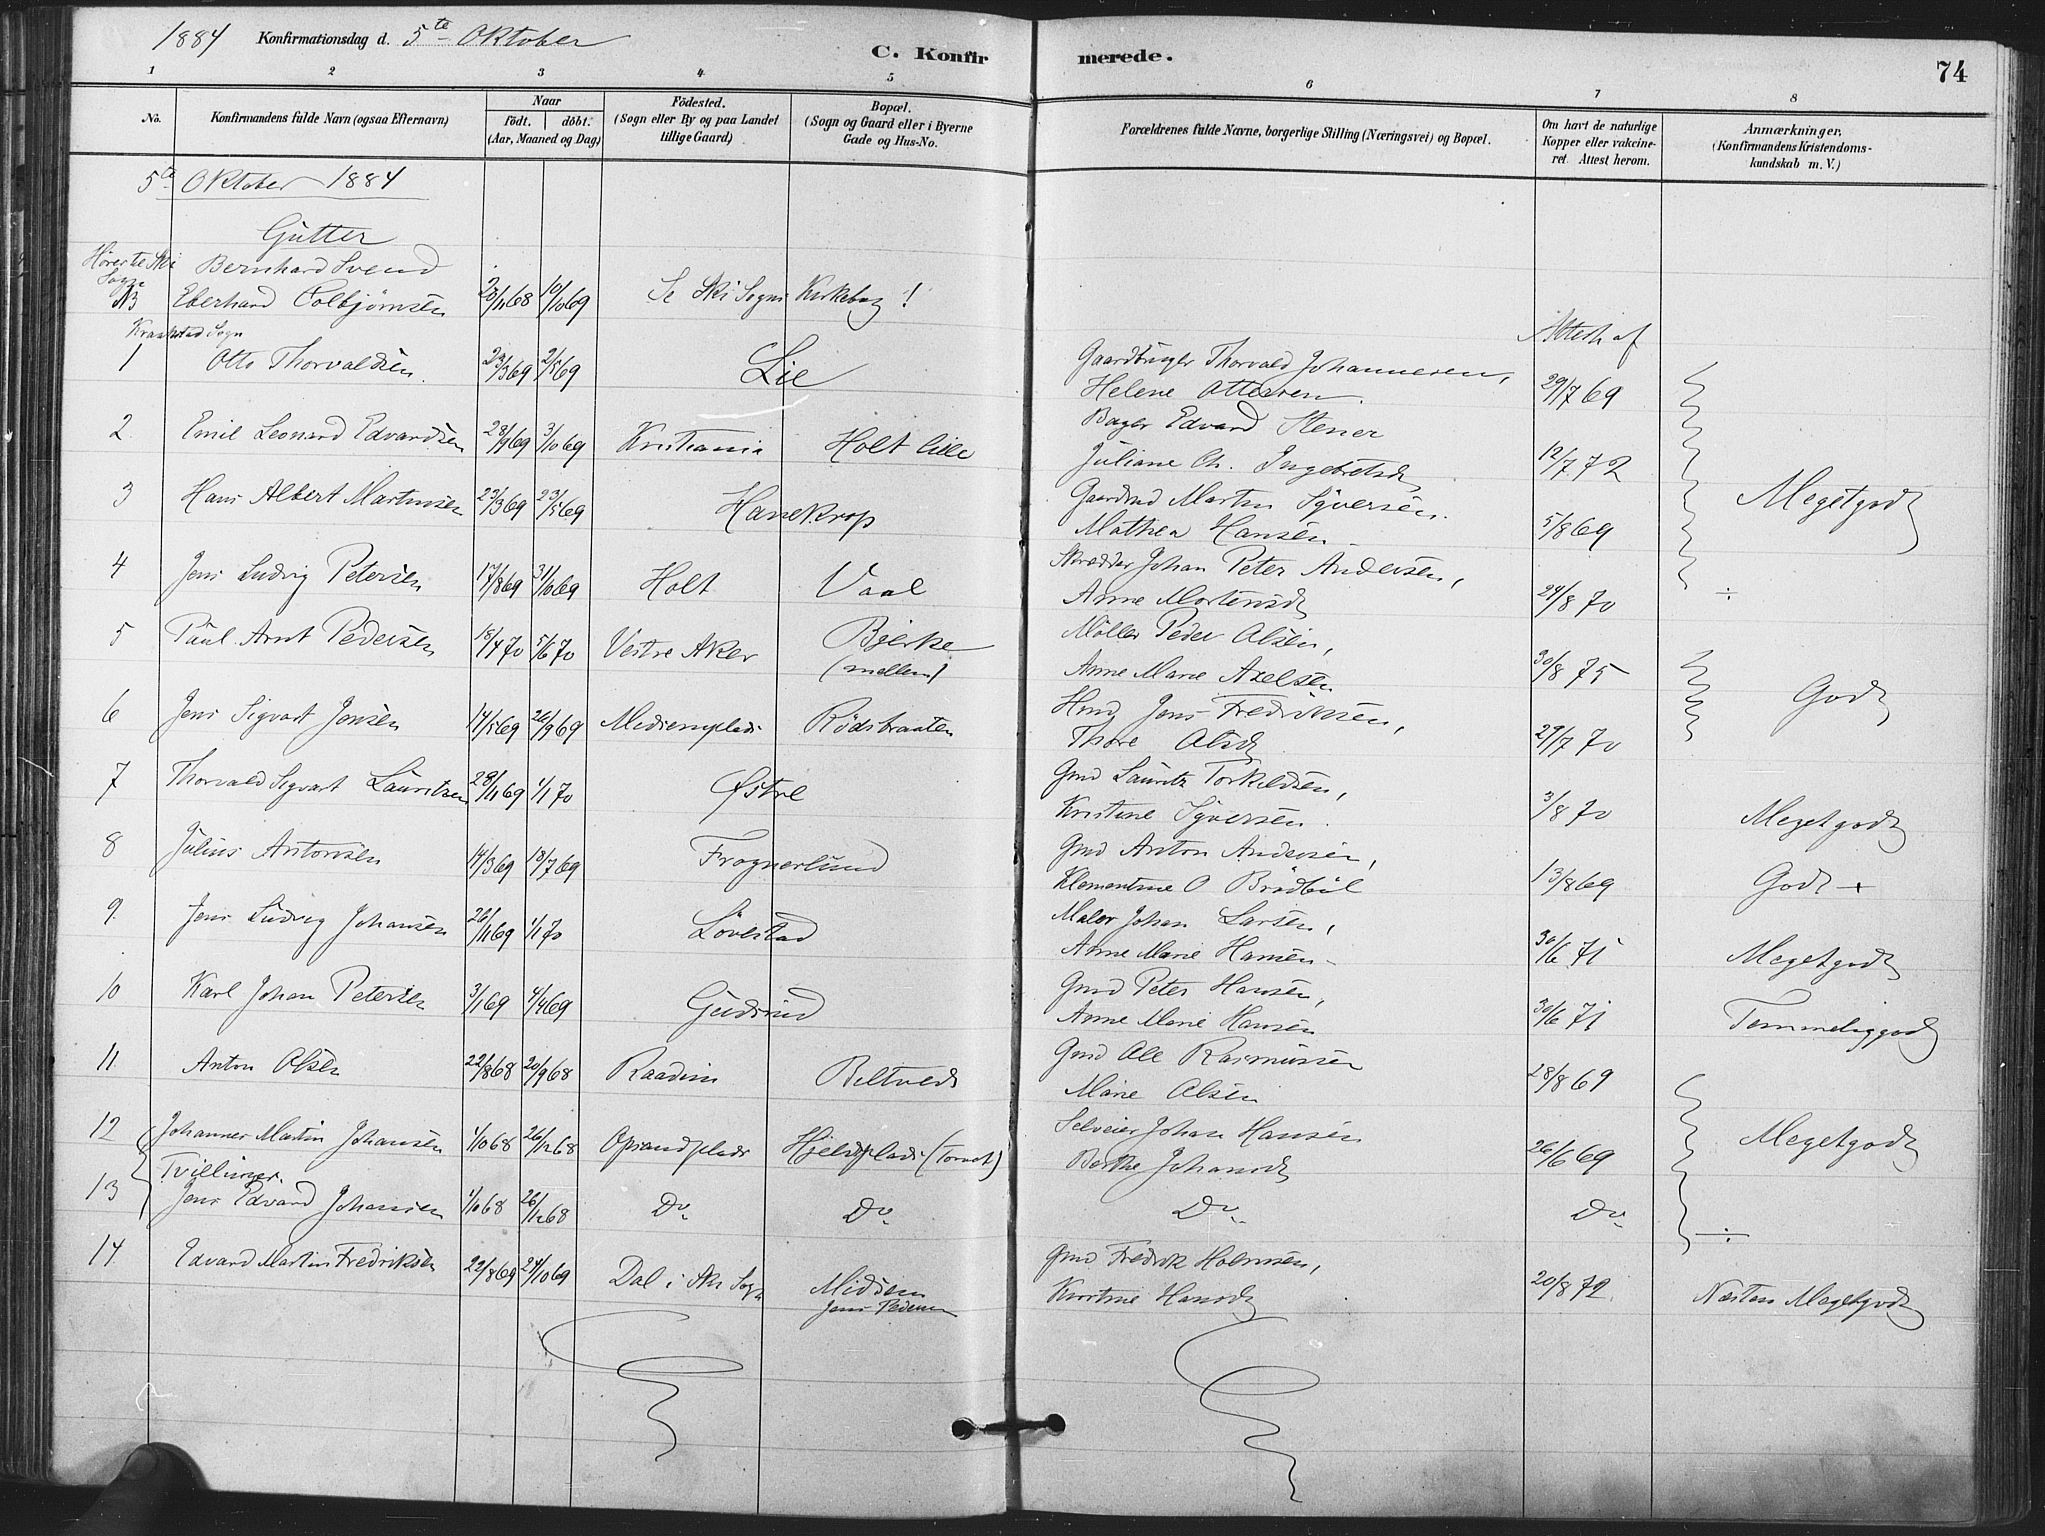 1884 Konfirmationsdag d. 5te Oktober
C. Konfirmerede.
74
1 2 3 4 5 6 7 8
No.
Konfirmandens fulde Navn (ogsaa Efternavn)
Naar
födt. döbt.
(Aar, Maaned og Dag)
Födested.
(Sogn eller By og paa Landet
tillige Gaard)
Bopæl.
(Sogn og Gaard eller i Byerne
Gade og Hus-No.
Forældrenes fulde Navne, borgerlige Stilling (Næringsvei) og Bopæl.
Om havt de naturlige
Kopper eller vakcine-
ret. Attest herom.
Anmærkninger.
(Konfirmandens Kristendoms-
kundskab m. V.)
5te Oktober 1884
Gutter
Hører til Ski Sogn
NB Bernhard Svend
Eberhard Colbjørnsen 10/10 69 Se Ski Sogns Kirkebog!
Kraakstad Sogn
Attest af
1 Otto Thorvaldsen 23/3 69 2/5 69 Lie Gaardbruger Thorvald Johannesen,
Helene Ottesen 29/7 69
2 Emil Leonard Edvardsen 28/9 69 3/10 69 Kristiania Holt lille Bager Edvard Stener
Juliane Ch. Ingebretsd 12/7 72
3 Hans Albert Martinsen 23/3 69 23/5 69 Hanekrop Gaardmd Martin Syversen.
Mathea Hansen 5/8 69 Megetgodt
4 Jens Ludvig Petersen 17/8 69 31/10 69 Holt Vaal Skrædder Johan Peter Andersen,
Anne Mortensd 24/8 70 ÷
5 Paul Arnt Pedersen 18/4 70 5/6 70 Vestre Aker Bjerke
(mellem) Møller Peder Olsen,
Anne Marie Axelsen 30/8 75
6 Jens Sigvart Jensen 14/5 69 26/9 69 Midsemplads Rödsbraaten Hmd Jens Fredriksen,
Thore Olsd 29/7 70 Godt
7 Thorvald Sigvart Lauritsen 28/11 69 1/1 70 Østre Gmd Lauritz Torkildsen,
Kristine Syversen. 3/8 70 Megetgodt
8 Julius Antonsen 14/3 69 18/7 69 Frognerlund Gmd Anton Andersen,
Klementine O Brødböl 13/8 69 Godt +
9 Jens Ludvig Johansen 26/11 69 1/1 70 Løvestad Maler Johan Larsen,
Anne Marie Hansen 30/6 71 Megetgodt
10 Karl Johan Petersen 3/1 69 4/4 69 Gudsrud Gmd Peter Hansen,
Anne Marie Hansen 30/6 71 Temmeliggodt
11 Anton Olsen 22/8 68 20/9 68 Raadim Biltvedt Gmd Ole Rasmussen
Marie Olsen 28/8 69
12 Johannes Martin Johansen 1/10 68 26/12 68 Opsandplads Hjelsplads (Torvet) Selveier Johan Hansen
Berthe Johansd 26/6 69 Megetgodt
Tvillinger.
13 Jens Edvard Johansen 1/10 68 26/12 68 Do Do Do Do ÷
14 Edvard Martin Fredriksen 22/8 69 24/10 69 Dal i Ski Sogn Midsem
Jens Pedersen Gmd Fredrik Holmsen,
Kristine Hansd 20/8 72 Næsten Megetgodt